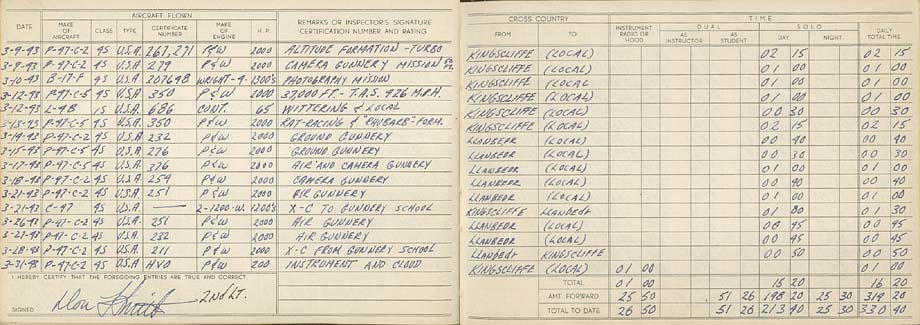 DATE MAKE OF AIRCRAFT CLASS TYPE AIRCRAFT FLOWN CERTIFICATE NUMBER MAKE OF ENGINE H.P. REMARKS OR INSPECTOR'S SIGNATURE CERTIFICATION NUMBER AND RATING
3-9-43 P-47-C-2 4S U.S.A. 267,271 P&W 2000 ALTITUDE FORMATION - TURBO
3-9-43 P-47-C-2 4S U.S.A 279 P&W 2000 CAMERA GUNNERY MISSION
3-10-43 B-17-F 4S U.S.A 207648 WRIGHT-4. 1300's PHOTOGRAPHY MISSION
3-12-43 P-47-C-5 4S U.S.A. 350 P&W 2000 37,000 FT. - T.A.S. 426 M.P.H.
3-12-43 L-4B 1S U.S.A 686 CONT. 65 WITTERING & LOCAL
3-13-43 P-47-C-5 4S U.S.A 350 P&W 2000 RAT-RACING & "RHUBARB" FORM.
3-14-43 P-47-C-2 4S U.S.A 232 P&W 2000 GROUND GUNNERY
3-15-43 P-47-C-5 4S U.S.A 276 P&W 2000 GROUND GUNNERY
3-17-43 P-47-C-5 4S U.S.A 276 P&W 2000 AIR AND CAMERA GUNNERY
3-18-43 P-47-C-2 4S U.S.A 254 P&W 2000 CAMERA GUNNERY
3-21-43 P-47-C-2 4S U.S.A 251 P&W 2000 AIR GUNNERY
3-21-43 C-47 U.S.A. — 2-1200-W. 1200's X-C TO GUNNERY SCHOOL
3-26-43 P-47-C-2 4S U.S.A. 251 P&W 2000 AIR GUNNERY
3-27-43 P-47-C-2 4S U.S.A 232 P&W 2000 AIR GUNNERY
3-28-43 P-47-C-2 4S U.S.A. 211 P&W 2000 X-C FROM GUNNERY SCHOOL
3-31-43 P-47-C-2 4S U.S.A P&W 200 INSTRUMENT AND CLOUD
I HEREBY CERTIFY THAT THE FOREGOING ENTRIES ARE TRUE AND CORRECT.
SIGNED Don Smith 2nd LT.
CROSS COUNTRY TIME
FROM TO INSTRUMENT RADIO OR HOOD DUAL AS INSTRUCTOR AS STUDENT SOLO DAY NIGHT DAILY TOTAL TIME
KINGSCLIFFE (LOCAL) 02 15 02 15
KINGSCLIFFE (LOCAL) 01 00 01 00
KINGSCLIFFE (LOCAL) 01 00 01 00
KINGSCLIFFE (LOCAL) 01 00 01 00
KINGSCLIFFE (LOCAL) 00 30 00 30
KINGSCLIFFE (LOCAL) 02 15 02 15
LLANBEDR (LOCAL) 00 40 00 40
LLANBEDR (LOCAL) 00 30 00 30
LLANBEDR (LOCAL) 01 00 01 00
LLANBEDR (LOCAL) 00 40 00 40
LLANBEDR (LOCAL) 01 00 01 00
KINGSCLIFFE LLANBEDR 01 30 01 30
LLANBEDR (LOCAL) 00 45 00 45
LLANBEDR (LOCAL) 00 45 00 45
LLANBEDR KINGSCLIFFE 00 50 00 50
KINGSCLIFFE (LOCAL) 01 00 01 00
TOTAL 01 00 15 20 16 20
AMT. FORWARD 25 50 51 26 198 20 25 30 314 20
TOTAL TO DATE 26 50 51 26 213 40 25 30 330 40